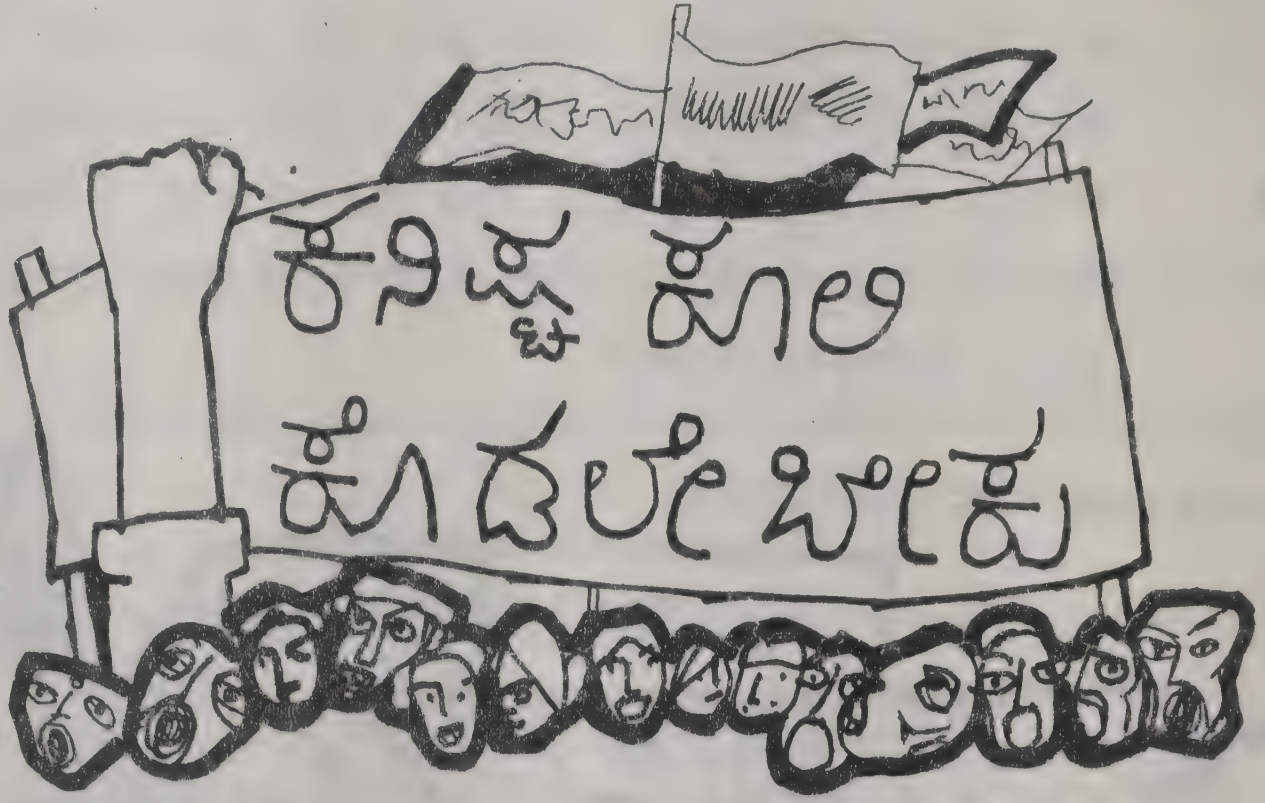 ಕನಿಷ್ಟ ಕೂಲಿ
ಕೊಡಲೇಬೇಕು